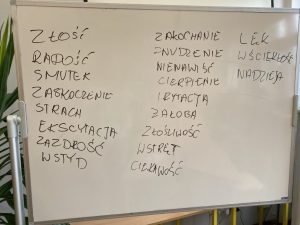 ZŁOŚĆ
RADOŚĆ
SMUTEK
ZASKOCZENIE
STRACH
EKSCYTACJA
ZAZDROŚĆ
WSTYD
ZAKOCHANIE
ZNUDZENIE
NIENAWIŚĆ
CIERPIENIE
IRYTACJA
ŻAŁOBA
ZŁOŚLIWOŚĆ
WSTRĘT
CIEKAWOŚĆ
LĘK
WŚCIEKŁOŚĆ
NADZIEJA